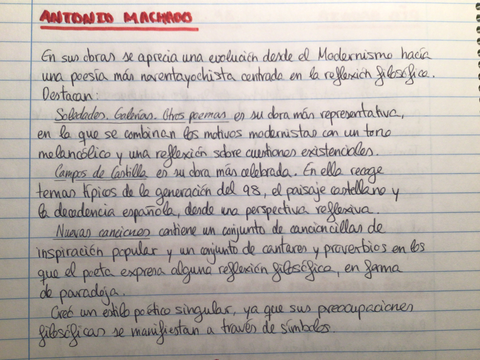 ANTONIO MACHADO
En sus obras se aprecia una evolución desde el Modernismo hacia
una poesía más noventayochista centrada en la reflexión filosófica.
Destacan:
Soledades. Galerías. Otros poemas. es su obra más representativa,
en la que se combinan los motivos modernistas con un tono
melancólico y una reflexión sobre cuestiones existenciales.
Campos de Castilla es su obra más celebrada. En ella recoge
temas típicos de la generación del 98, el paisaje castellano y
la decadencia española, desde una perspectiva reflexiva.
Nuevas canciones contiene un conjunto de cancioncillas de
inspiración popular y un conjunto de cantares y proverbios en los
que el poeta expresa alguna reflexión filosófica, en forma
de paradoja.
Creó un estilo poético singular, ya que sus preocupaciones
filosóficas se manifiestan a través de símbolos.